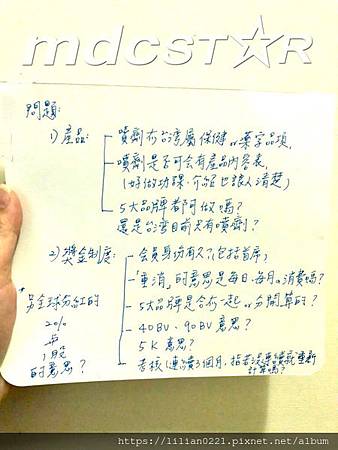 mdcSTAR
問題:
1) 產品:
噴劑在台灣屬保健or藥字品項,
噴劑是否可會有產品內容表,
(好做功課、介紹也讓人清楚)
5大品牌都可做嗎?
還是台灣目前只有噴劑?
2) 獎金制度:
會員身份有久?(包括首席)
"重消"的意思是每日、每月。消費嗎?
5大品牌是合在一起or分開算的?
40BV、90BV意思?
5K意思?
考核(連續)3個月,指若沒連續就重新
計算嗎?
*另全球分紅的
20%
與
1股
的意思?
https://lilian0221.pixnet.net/album